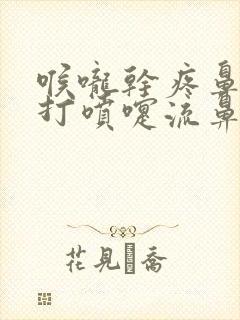 喉嚨幹疼鼻
打噴嚏流鼻
花見喬